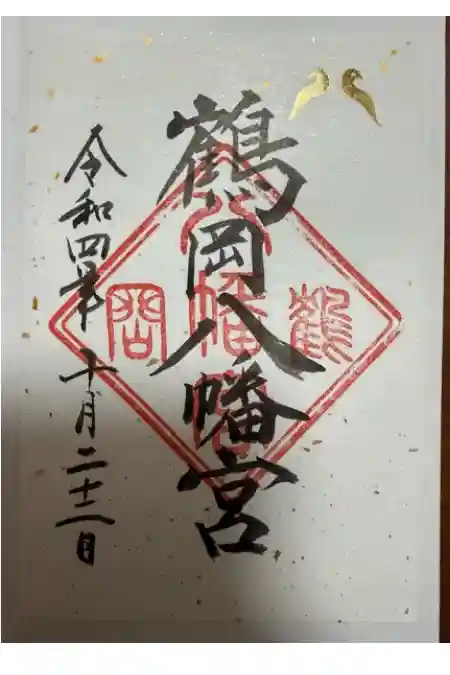 鶴岡八幡宮
鶴
八幡宮
岡
令和四年十月二十二日